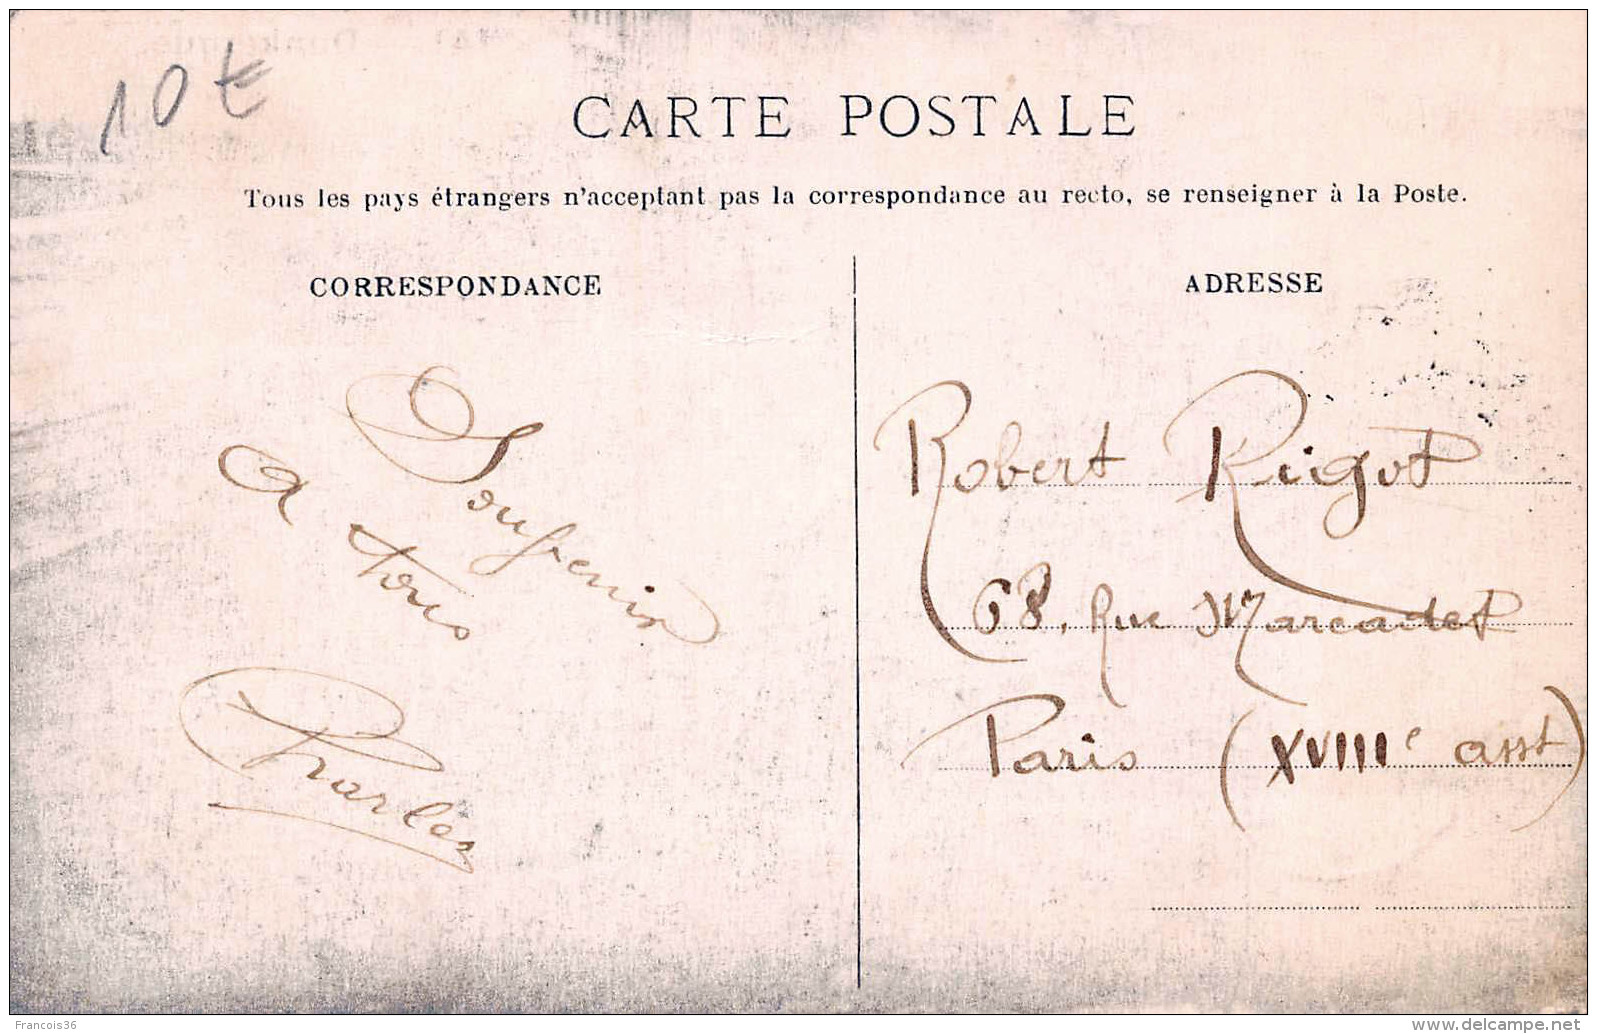 10 €
CARTE POSTALE
Tous les pays étrangers n'acceptant pas la correspondance au recto, se renseigner à la Poste.
CORRESPONDANCE
Souvenir
a tous
Charles
ADRESSE
Robert Rigot
68, Rue Marcadet
Paris (XVIIIe arrt)
Francois36
www.delcampe.net